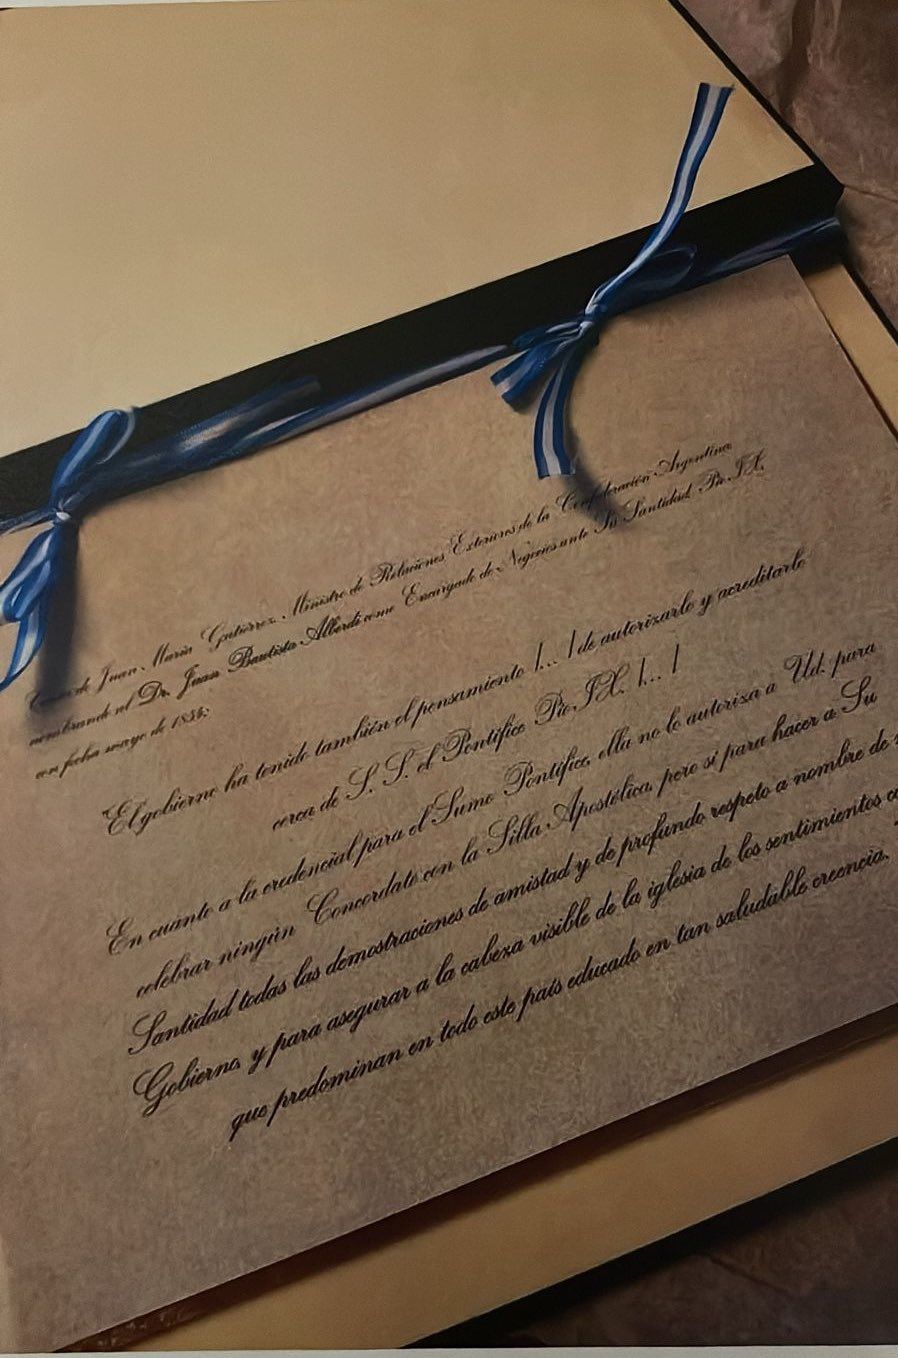 Carta de Juan María Gutiérrez, Ministro de Relaciones Exteriores de la Confederación Argentina,
nombrando al Dr. Juan Bautista Alberdi como Encargado de Negocios ante Su Santidad, Pío IX,
con fecha mayo de 1854:
El gobierno ha tenido también el pensamiento [... ] de autorizarlo y acreditarlo
cerca de S. S. el Pontífice Pío IX. [... ]
En cuanto a la credencial para el Sumo Pontífice, ella no lo autoriza a Ud. para
celebrar ningún Concordato con la Silla Apostólica, pero sí para hacer a Su
Santidad todas las demostraciones de amistad y de profundo respeto a nombre de
Gobierno, y para asegurar a la cabeza visible de la iglesia de los sentimientos
que predominan en todo este país educado en tan saludable creencia.